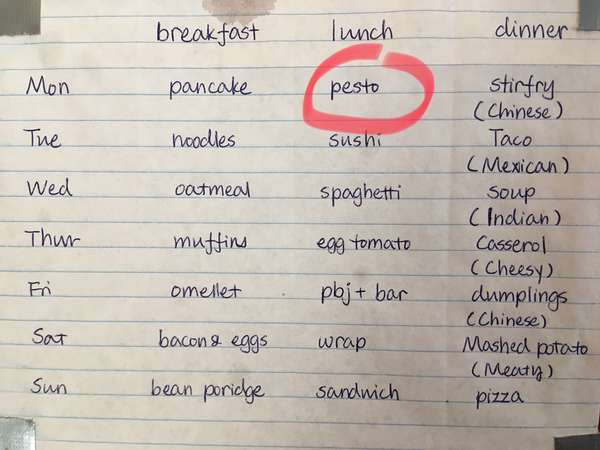 breakfast lunch dinner
Mon pancake pesto stirfry
(Chinese)
Tue noodles sushi Taco
(Mexican)
Wed oatmeal spaghetti soup
(Indian)
Thur muffins egg tomato Casserol
(Cheesy)
Fri omellet pbj + bar dumplings
(Chinese)
Sat bacon & eggs wrap Mashed potato
(Meaty)
Sun bean poridge sandwich pizza